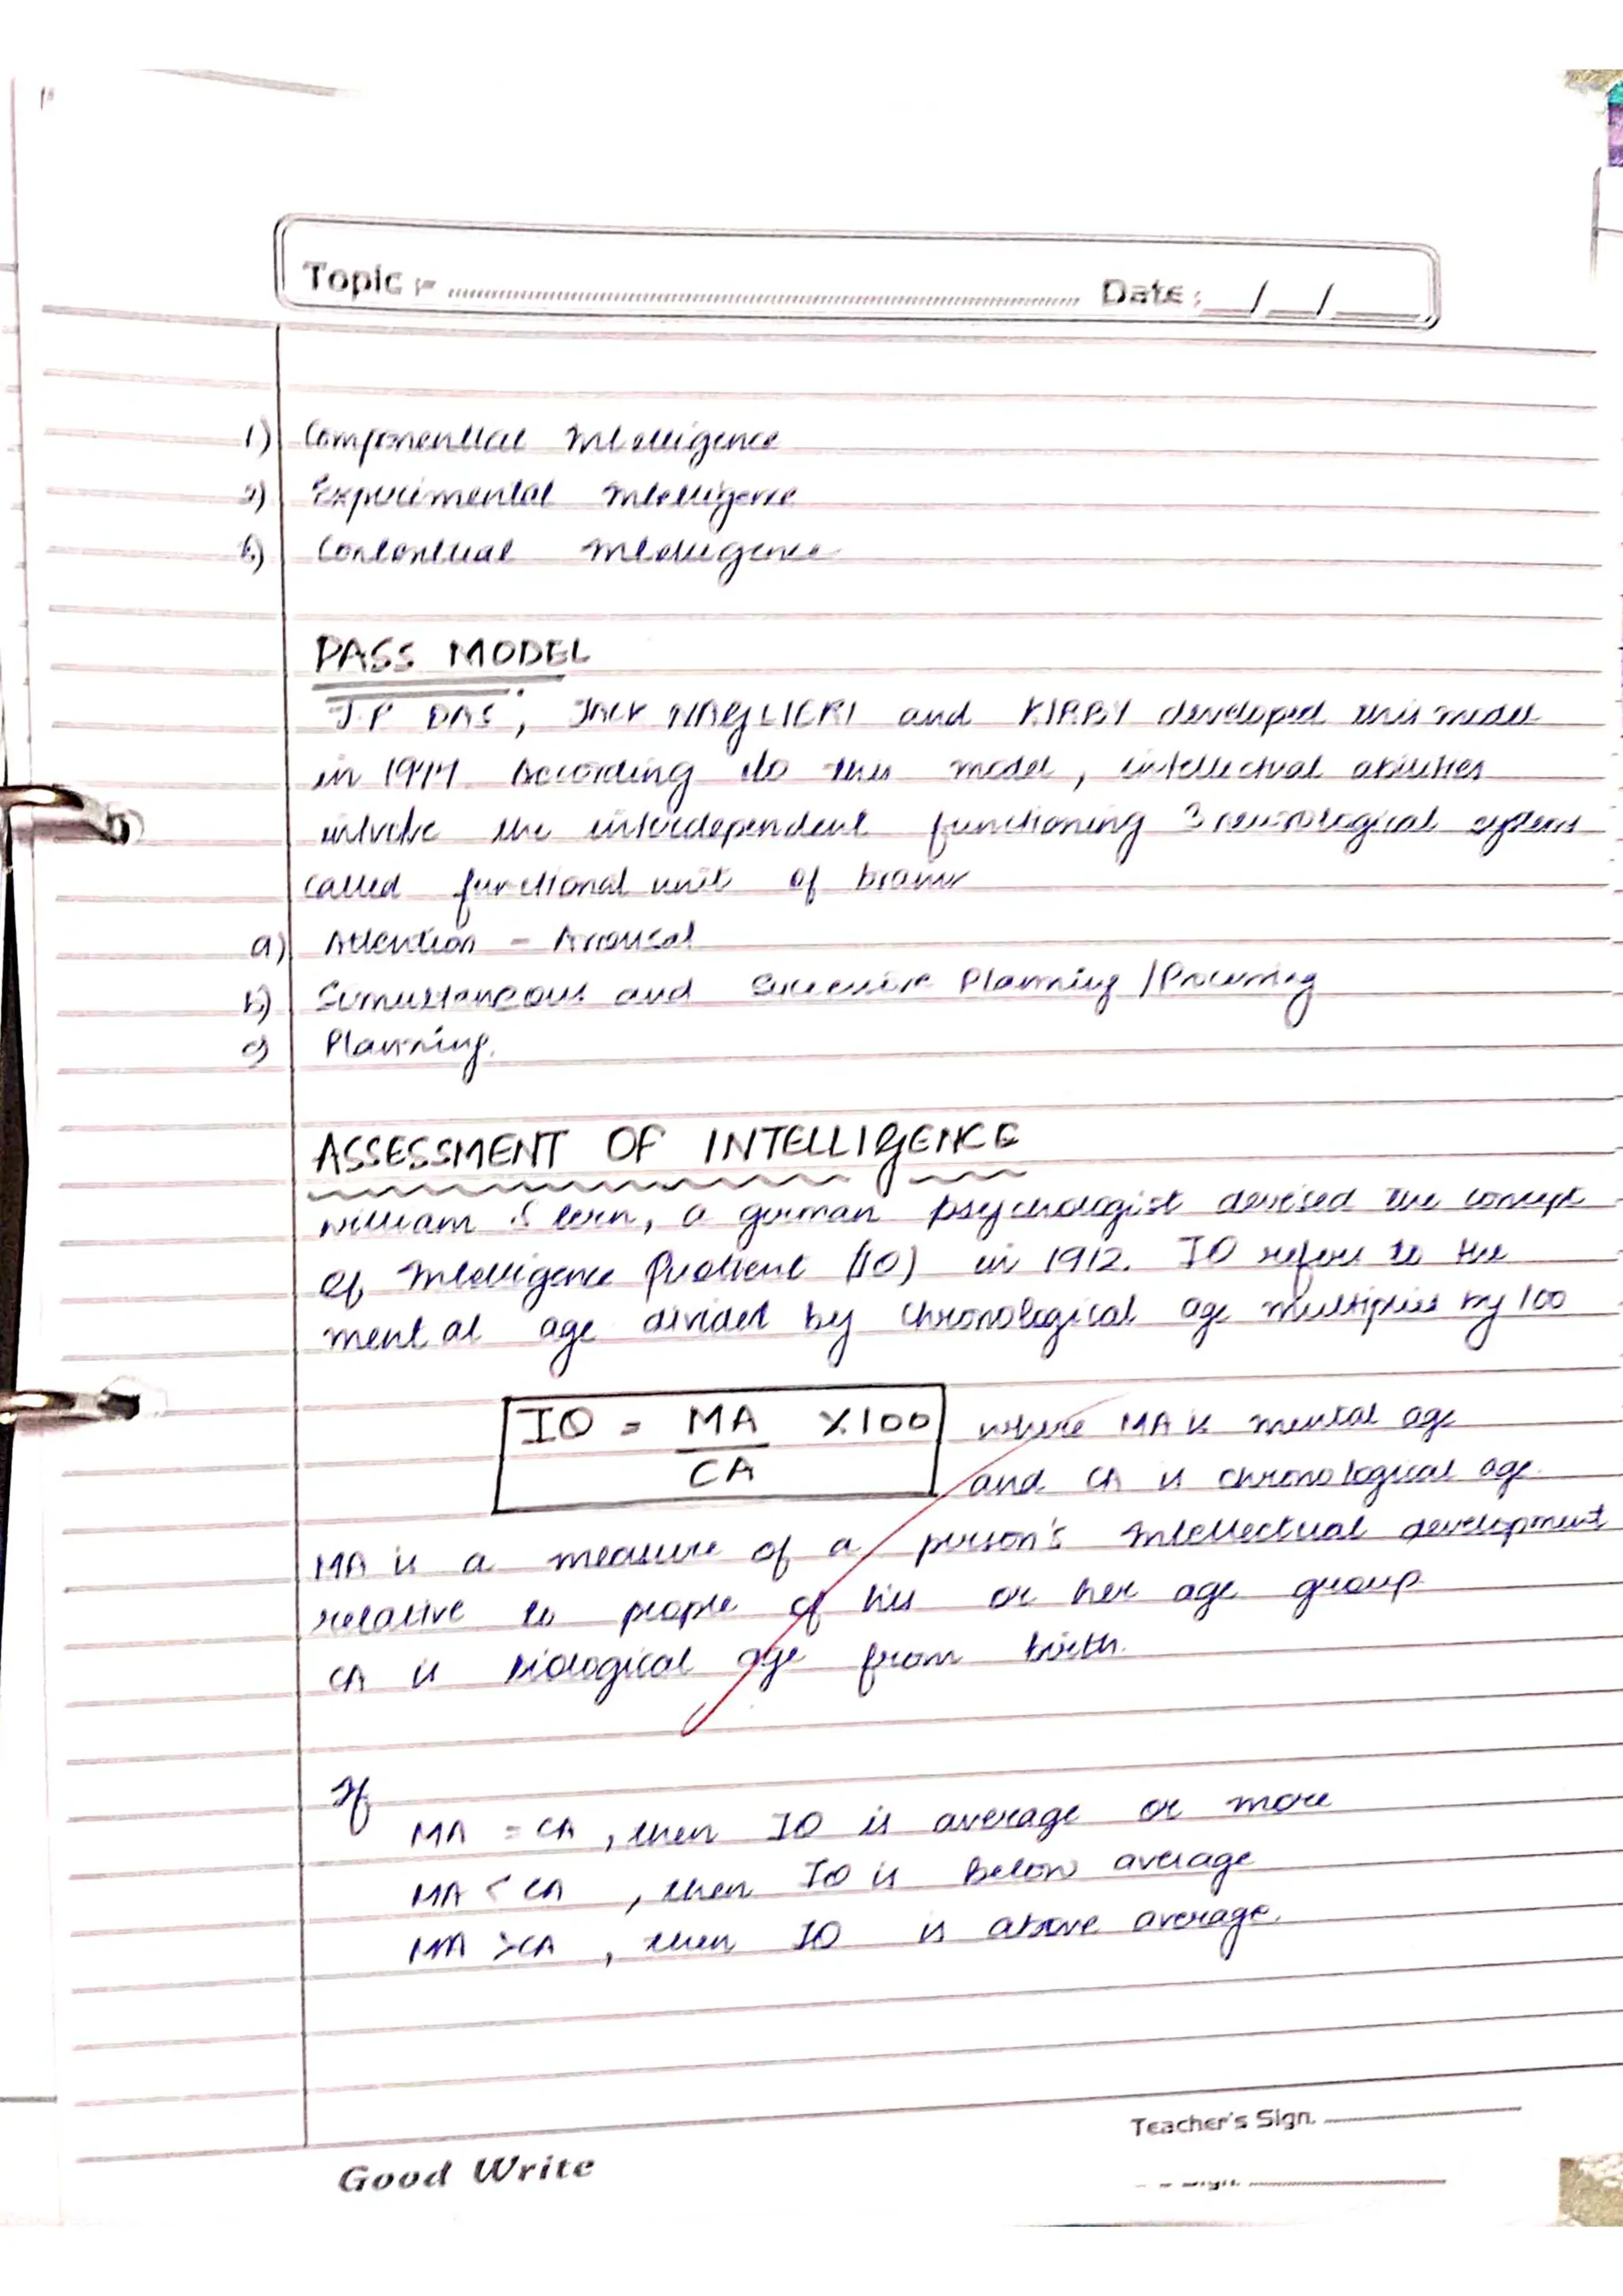 Topic :- Date: __/__/____
1) Componential Intelligence
2) Experimental Intelligence
3) Contextual Intelligence
PASS MODEL
J.P DAS, JACK NAGLIERI and KIRBY developed this model
in 1994. According to this model, intellectual abilities
involve the interdependent functioning 3 neurological systems
called functional unit of brain
a) Attention - Arrousal
b) Simultaneous and Successive Planning / Processing
c) Planning.
ASSESSMENT OF INTELLIGENCE
William Stern, a german psychologist devised the concept
of Intelligence Quotient (IQ) in 1912. IQ refers to the
mental age divided by chronological age multiplies by 100
IQ = MA/CA X100 where MA is mental age
and CA is chronological age.
MA is a measure of a person's intellectual development
relative to people of his or her age group
CA is biological age from birth.
If
MA = CA, then IQ is average or more
MA < CA, then IQ is below average
MA > CA, then IQ is above average.
Teacher's Sign.
Good Write